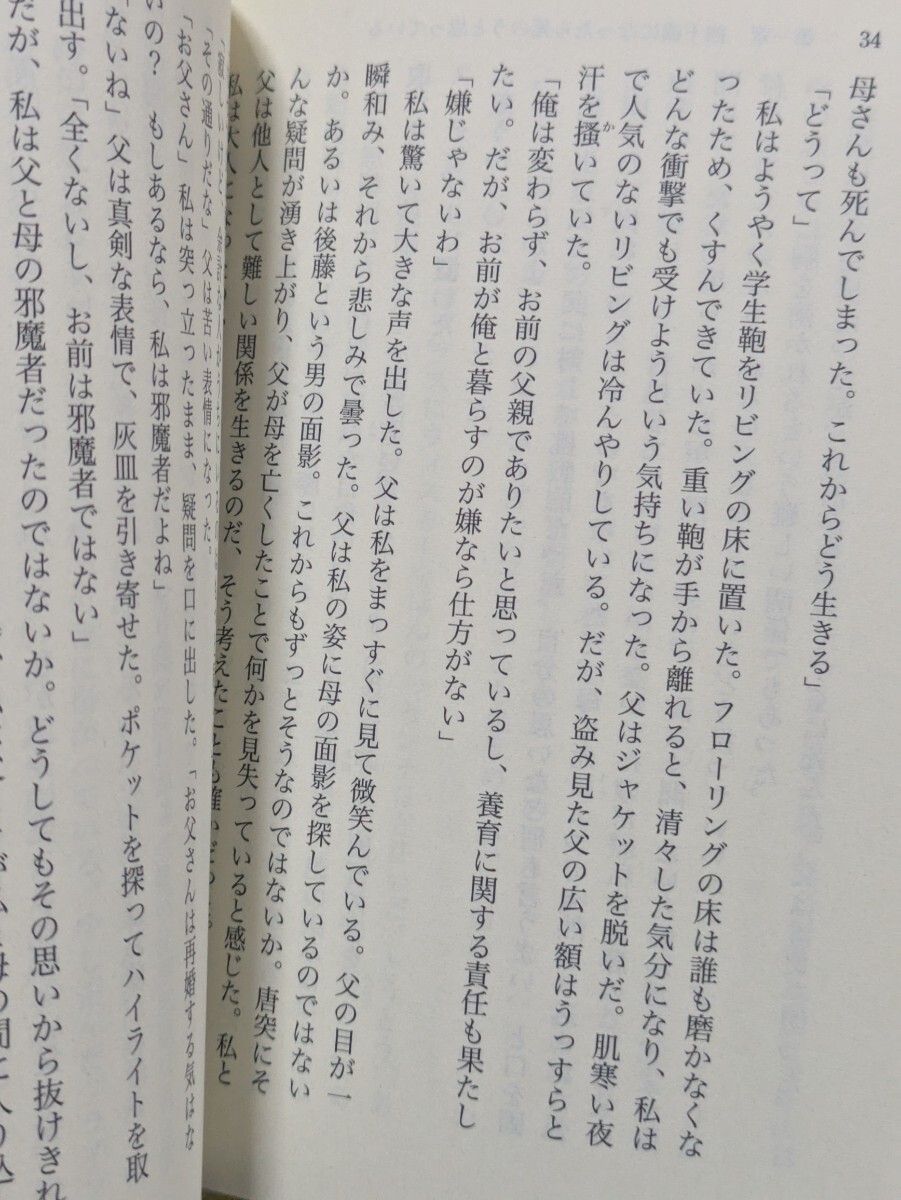 34
母さんも死んでしまった。これからどう生きる」
「どうって」
私はようやく学生鞄をリビングの床に置いた。フローリングの床は誰も磨かなくな
ったため、くすんできていた。重い鞄が手から離れると、清々した気分になり、私は
どんな衝撃でも受けようという気持ちになった。父はジャケットを脱いだ。肌寒い夜
で人気のないリビングは冷んやりしている。だが、盗み見た父の広い額はうっすらと
汗を掻いていた。
か
「俺は変わらず、お前の父親でありたいと思っているし、養育に関する責任も果たし
たい。だが、お前が俺と暮らすのが嫌なら仕方がない」
「嫌じゃないわ」
私は驚いて大きな声を出した。父は私をまっすぐに見て微笑んでいる。父の目が一
瞬和み、それから悲しみで曇った。父は私の姿に母の面影を探しているのではない
か。あるいは後藤という男の面影。これからもずっとそうなのではないか。唐突にそ
んな疑問が湧き上がり、父が母を亡くしたことで何かを見失っていると感じた。私と
父は他人として難しい関係を生きるのだ、そう考えたことも確かだ
私は大人にな
「その通りだな」父は苦い表情になった。
「お父さん」私は突っ立ったまま、疑問を口に出した。「お父さんは再婚する気はな
いの？　もしあるなら、私は邪魔者だよね」
「ないね」父は真剣な表情で、灰皿を引き寄せた。ポケットを探ってハイライトを取
出す。「全くないし、お前は邪魔者ではない」
だが、私は父と母の邪魔者だったのではないか。どうしてもその思いから抜けきれ